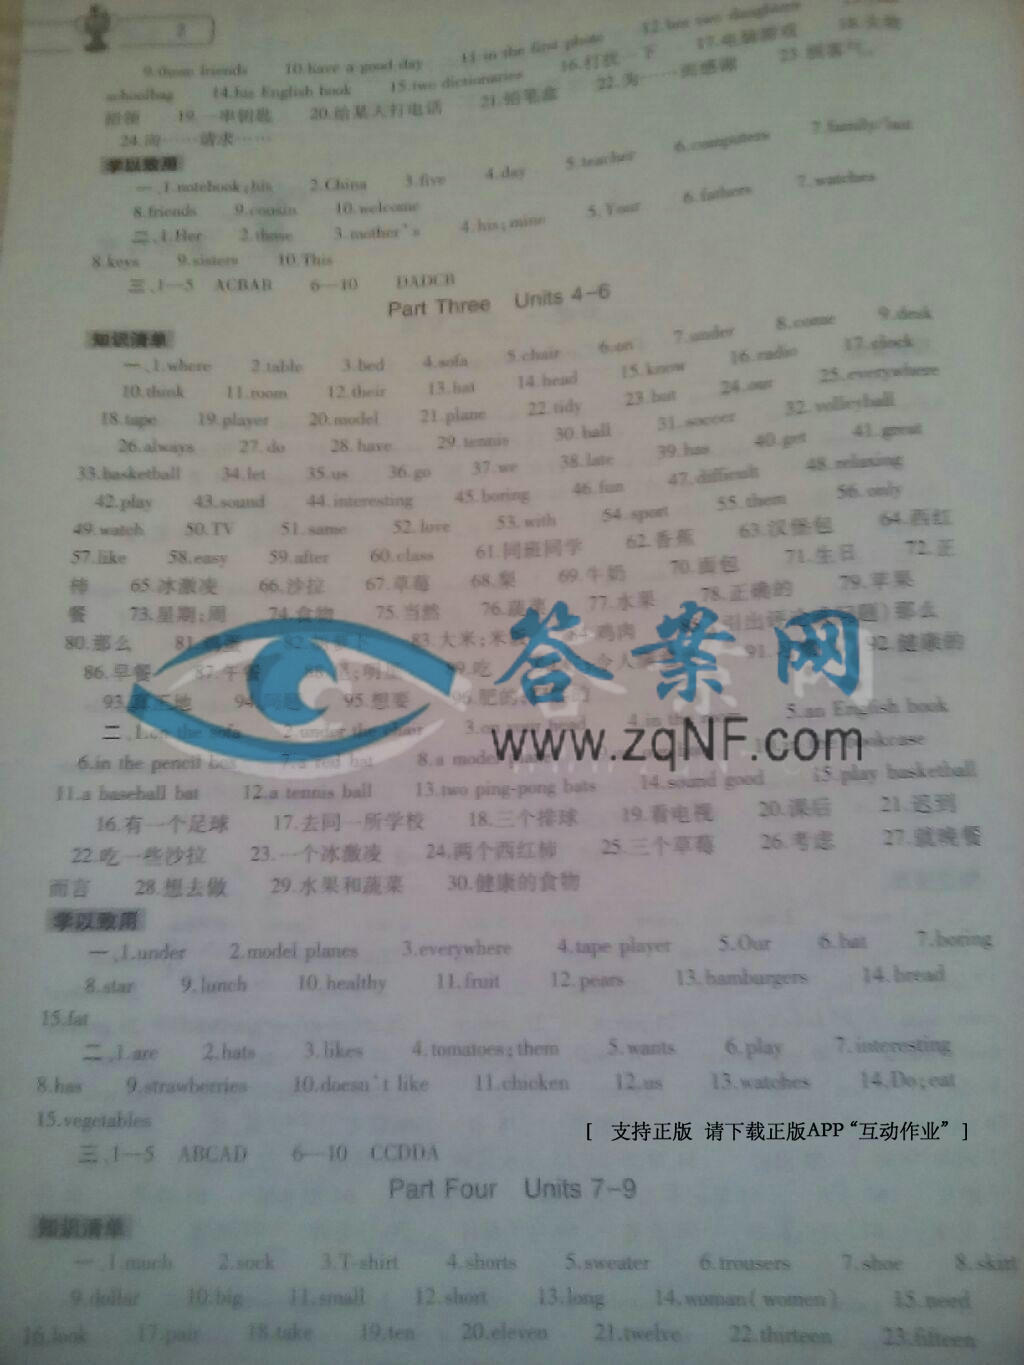 2
9.those friends 10.have a good day 11.in the first photo 12.her two daughters
schoolbag 14.his English book 15.two dictionaries 16.打扰一下 17.电脑游戏 18.失物
招领 19.一串钥匙 20.给某人打电话 21.铅笔盒 22.为……而感谢 23.别客气。
24.向……请求……
学以致用
一、1.notebook;his 2.China 3.five 4.day 5.teacher 6.computers 7.family/last
8.friends 9.cousin 10.welcome
二、1.Her 2.those 3.mother's 4.his;mine 5.Your 6.fathers 7.watches
8.keys 9.sisters 10.This
三、1—5 ACBAB 6—10 DADCB
Part Three Units 4-6
知识清单
一、1.where 2.table 3.bed 4.sofa 5.chair 6.on 7.under 8.come 9.desk
10.think 11.room 12.their 13.hat 14.head 15.know 16.radio 17.clock
18.tape 19.player 20.model 21.plane 22.tidy 23.but 24.our 25.everywhere
26.always 27.do 28.have 29.tennis 30.ball 31.soccer 32.volleyball
33.basketball 34.let 35.us 36.go 37.we 38.late 39.has 40.get 41.great
42.play 43.sound 44.interesting 45.boring 46.fun 47.difficult 48.relaxing
49.watch 50.TV 51.same 52.love 53.with 54.sport 55.them 56.only
57.like 58.easy 59.after 60.class 61.同班同学 62.香蕉 63.汉堡包 64.西红
柿 65.冰激凌 66.沙拉 67.草莓 68.梨 69.牛奶 70.面包 71.生日 72.正
餐 73.星期;周 74.食物 75.当然 76.蔬菜 77.水果 78.正确的 79.苹果
80.那么 81.鸡蛋 82. 83.大米;米 84.鸡肉 那么
86.早餐 87.午餐 88. 89.吃 91. 92.健康的
93.真正地 94.问题 95.想要 96.肥的
二、1.on the sofa 2.under the chair 3.on your head 4.in the 5.an English book
6.in the pencil box 7.a red hat 8.a model plane bookcase
11.a baseball bat 12.a tennis ball 13.two ping-pong bats 14.sound good 15.play basketball
16.有一个足球 17.去同一所学校 18.三个排球 19.看电视 20.课后 21.迟到
22.吃一些沙拉 23.一个冰激凌 24.两个西红柿 25.三个草莓 26.考虑 27.就晚餐
而言 28.想去做 29.水果和蔬菜 30.健康的食物
学以致用
一、1.under 2.model planes 3.everywhere 4.tape player 5.Our 6.hat 7.boring
8.star 9.lunch 10.healthy 11.fruit 12.pears 13.hamburgers 14.bread
15.fat
二、1.are 2.hats 3.likes 4.tomatoes;them 5.wants 6.play 7.interesting
8.has 9.strawberries 10.doesn't like 11.chicken 12.us 13.watches 14.Do;eat
15.vegetables
三、1—5 ABCAD 6—10 CCDDA
Part Four Units 7-9
知识清单
一、1.much 2.sock 3.T-shirt 4.shorts 5.sweater 6.trousers 7.shoe 8.skirt
9.dollar 10.big 11.small 12.short 13.long 14.woman(women) 15.need
16.look 17.pair 18.take 19.ten 20.eleven 21.twelve 22.thirteen 23.fifteen
答案网
www.zqNF.com
[ 支持正版 请下载正版APP“互动作业” ]